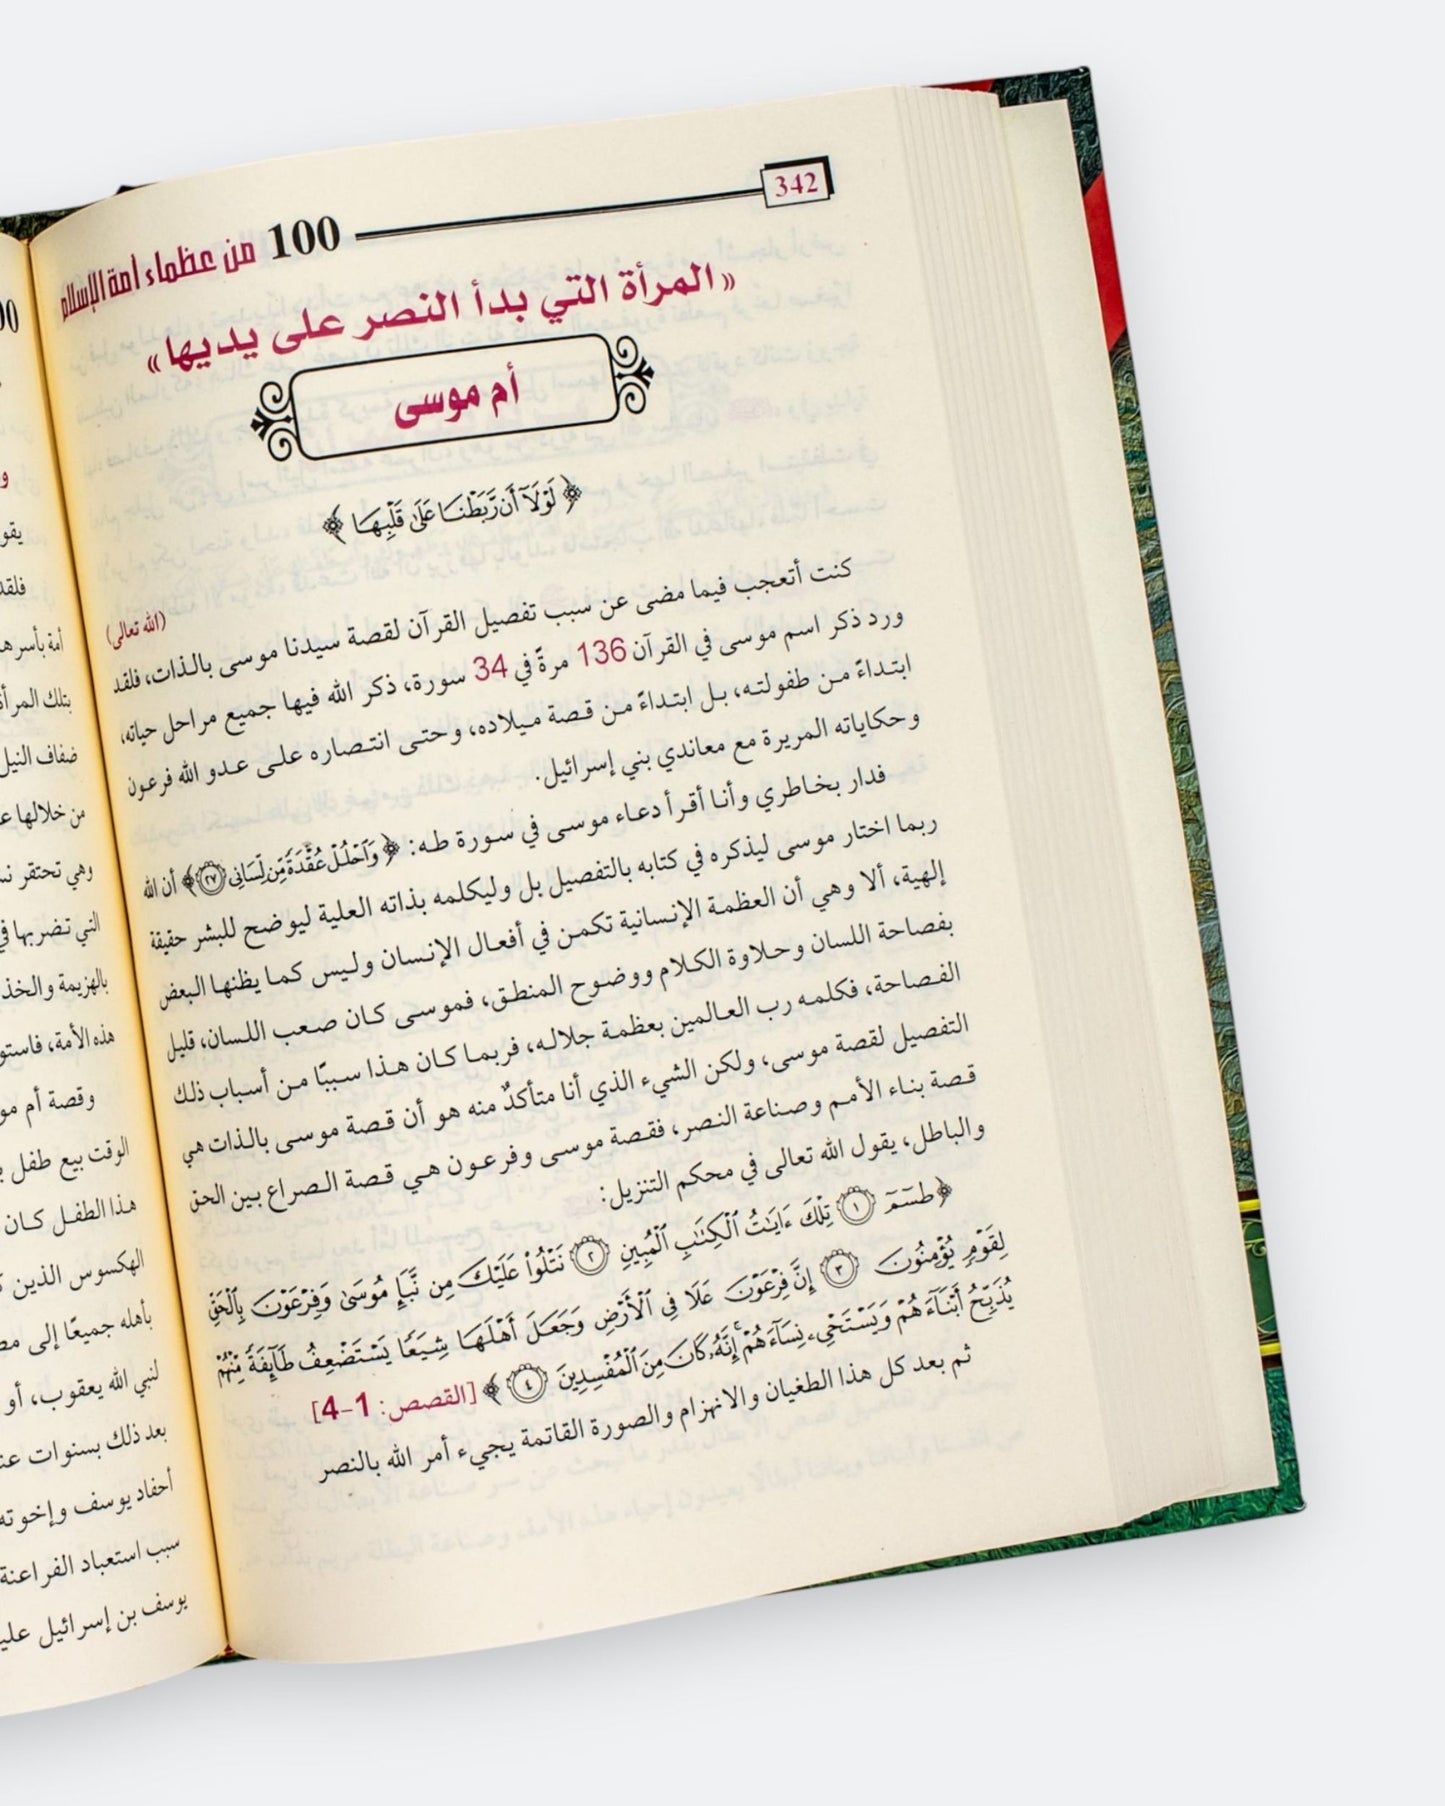 342
100 من عظماء أمة الإسلام
«المرأة التي بدأ النصر على يديها»
أم موسى
﴿لَوْلَآ أَن رَّبَطْنَا عَلَىٰ قَلْبِهَا﴾
(الله تعالى)
كنت أتعجب فيما مضى عن سبب تفصيل القرآن لقصة سيدنا موسى بالذات، فلقد
ورد ذكر اسم موسى في القرآن 136 مرةً في 34 سورة، ذكر الله فيها جميع مراحل حياته،
ابتداءً من طفولته، بل ابتداءً من قصة ميلاده، وحتى انتصاره على عدو الله فرعون
وحكاياته المريرة مع معاندي بني إسرائيل.
فدار بخاطري وأنا أقرأ دعاء موسى في سورة طه: ﴿وَٱحْلُلْ عُقْدَةً مِّن لِّسَانِى ٢٧﴾ أن الله
ربما اختار موسى ليذكره في كتابه بالتفصيل بل وليكلمه بذاته العلية ليوضح للبشر حقيقة
إلهية، ألا وهي أن العظمة الإنسانية تكمن في أفعال الإنسان وليس كما يظنها البعض
بفصاحة اللسان وحلاوة الكلام ووضوح المنطق، فموسى كان صعب اللسان، قليل
الفصاحة، فكلمه رب العالمين بعظمة جلاله، فربما كان هذا سببًا من أسباب ذلك
التفصيل لقصة موسى، ولكن الشيء الذي أنا متأكدٌ منه هو أن قصة موسى بالذات هي
قصة بناء الأمم وصناعة النصر، فقصة موسى وفرعون هي قصة الصراع بين الحق
والباطل، يقول الله تعالى في محكم التنزيل:
﴿طسٓمٓ ١ تِلْكَ ءَايَٰتُ ٱلْكِتَٰبِ ٱلْمُبِينِ ٢ نَتْلُوا۟ عَلَيْكَ مِن نَّبَإِ مُوسَىٰ وَفِرْعَوْنَ بِٱلْحَقِّ
لِقَوْمٍ يُؤْمِنُونَ ٣ إِنَّ فِرْعَوْنَ عَلَا فِى ٱلْأَرْضِ وَجَعَلَ أَهْلَهَا شِيَعًا يَسْتَضْعِفُ طَآئِفَةً مِّنْهُمْ
يُذَبِّحُ أَبْنَآءَهُمْ وَيَسْتَحْىِۦ نِسَآءَهُمْ إِنَّهُۥ كَانَ مِنَ ٱلْمُفْسِدِينَ ٤﴾ [القصص: 1-4]
ثم بعد كل هذا الطغيان والانهزام والصورة القاتمة يجيء أمر الله بالنصر
يقو
فلقد
أمة بأسرها
بتلك المرأة
ضفاف النيل
من خلالها
وهي تحتقر
التي تضربها في
بالهزيمة والخذ
هذه الأمة، فاستو
وقصة أم مو
الوقت بيع طفل
هذا الطفل كان
الهكسوس الذين
بأهله جميعًا إلى مص
لنبي الله يعقوب، أو
بعد ذلك بسنوات عند
أحفاد يوسف وإخوته
سبب استعباد الفراعنة
يوسف بن إسرائيل عليه